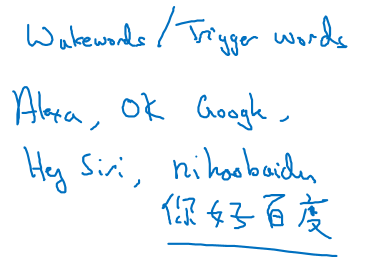 Wakewords/Trigger words
Alexa, OK Google,
Hey Siri, nihaobaidu
你好百度